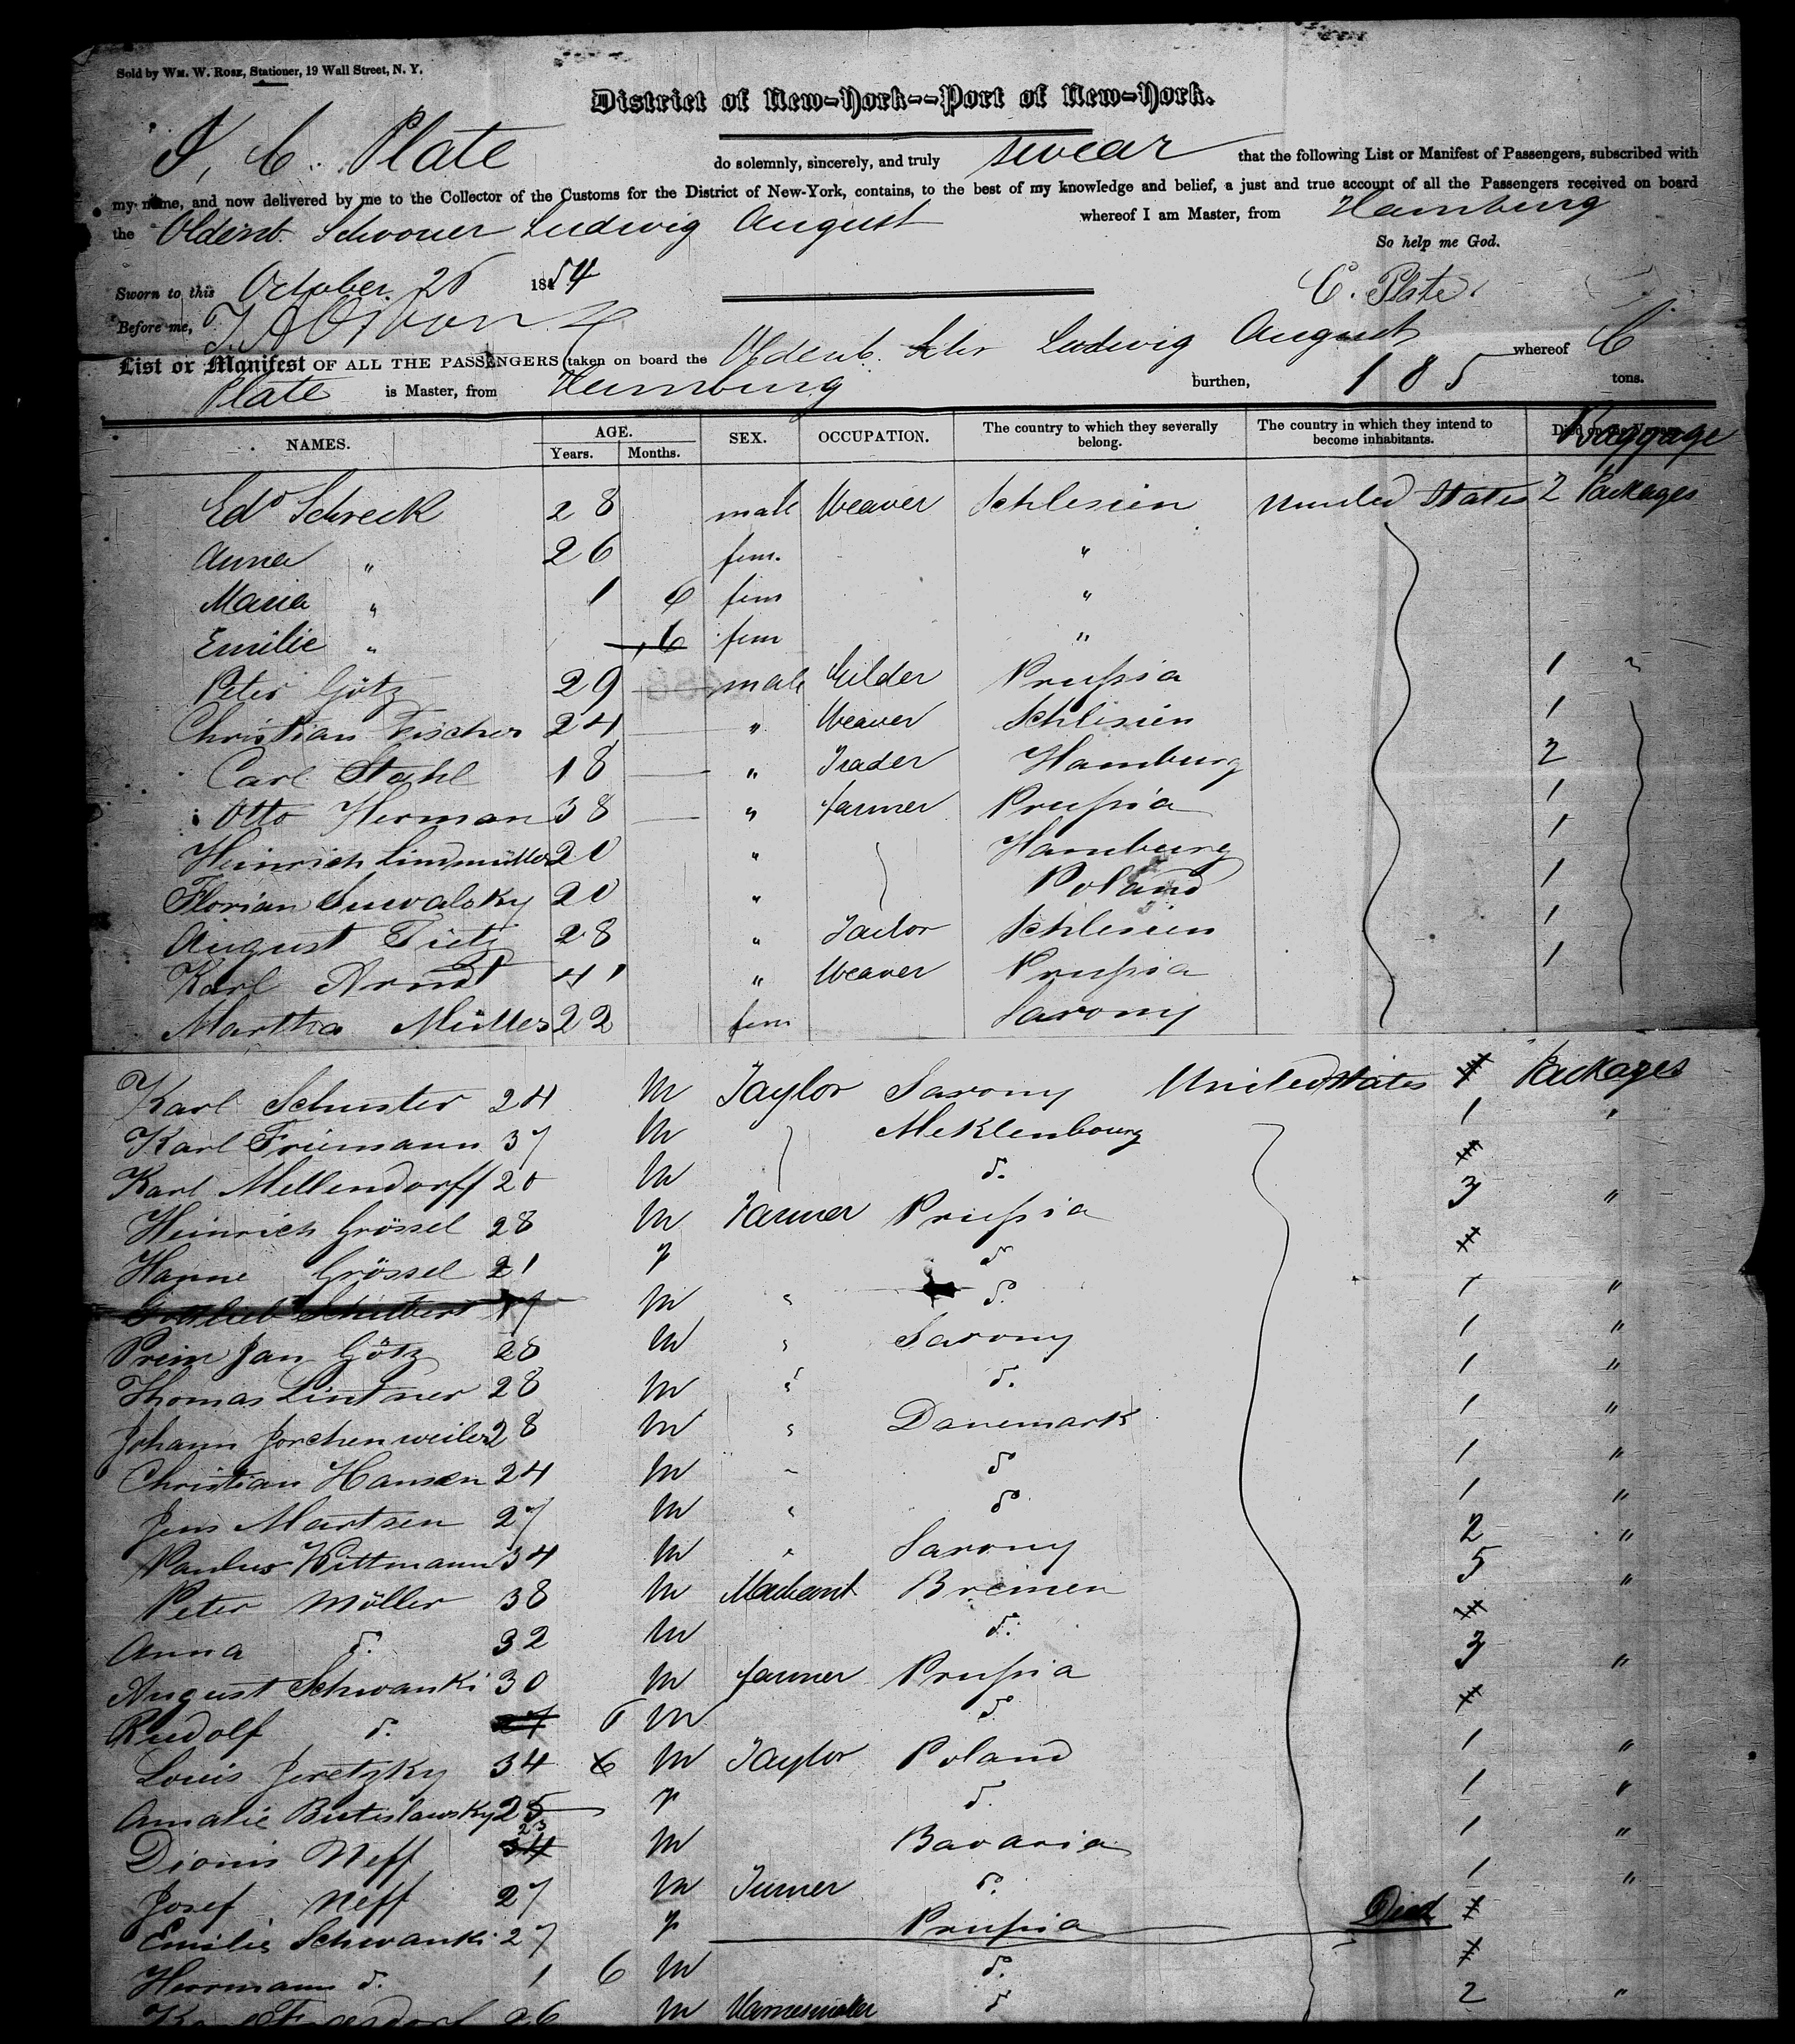 Sold by Wm. W. Rose, Stationer, 19 Wall Street, N. Y.
District of New-York--Port of New-York.
I, C. Plate do solemnly, sincerely, and truly swear that the following List or Manifest of Passengers, subscribed with
my name, and now delivered by me to the Collector of the Customs for the District of New-York, contains, to the best of my knowledge and belief, a just and true account of all the Passengers received on board
the Oldenb. Schooner Ludwig August whereof I am Master, from Hamburg
So help me God.
Sworn to this October 26 1854
C. Plate.
Before me,
List or Manifest OF ALL THE PASSENGERS taken on board the Oldenb. Schr Ludwig August whereof C
Plate is Master, from Hamburg burthen, 185 tons.
NAMES. AGE. SEX. OCCUPATION. The country to which they severally belong. The country in which they intend to become inhabitants. Baggage
Years. Months.
Edo Schreck 28 male Weaver Schlesien United States 2 Packages
Anna " 26 fem. "
Maria " 1 6 fem "
Emilie " 6 fem "
Peter Götz 29 male Gilder Prussia 1 "
Christian Fischer 24 " Weaver Schlesien 1
Carl Stahl 18 " Trader Hamburg 2
Otto Herman 38 " farmer Prussia 1
Heinrich Lindmüller 20 " Hamburg 1
Florian Suwalsky 20 " Poland 1
August Tietz 28 " Tailor Schlesien 1
Karl Arndt 41 " Weaver Prussia 1
Martha Müller 22 fem Saxony
Karl Schuster 24 M Taylor Saxony United States Packages
Karl Friemann 37 M Meklenbourg 1 "
Karl Mellendorff 20 M do.
Heinrich Grössel 28 M Farmer Prussia 3 "
Hanne Grössel 21 f do
Gottlieb Schubert M " do. 1 "
Prim Jan Götz 28 M " Saxony 1 "
Thomas Lintner 28 M " do. 1 "
Johann Jorchenweiler 28 M " Danemark 1 "
Christian Hansen 24 M " do 1 "
Jens Martsen 27 M " do 1 "
Paulus Wittmann 34 M " Saxony 2 "
Peter Möller 38 M Merchant Bremen 5 "
Anna do. 32 M do.
August Schwanki 30 M farmer Prussia 3 "
Rudolf do. 27 6 M do.
Louis Jeretzky 34 6 M Taylor Poland 1 "
Amalie Butislawsky 25 f do. 1 "
Dionis Neff 34 23 M Bavaria 1 "
Josef Neff 27 M Turner do. 1 "
Emilie Schwanki 27 f Prussia Died
Herrmann do. 1 6 M do.
26 M do 2 "